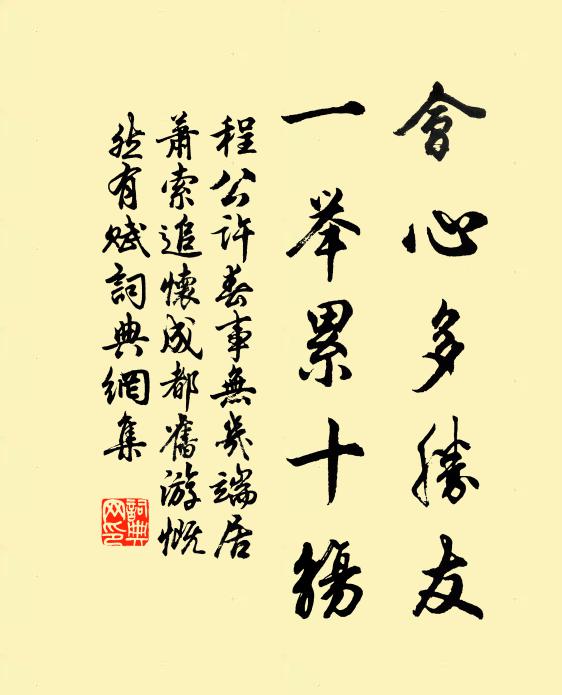 會心多勝友
一举累十觴
程公许春事無幾端居
萧索追懷成都舊游慨
然有赋詞典網集
詞典
网印